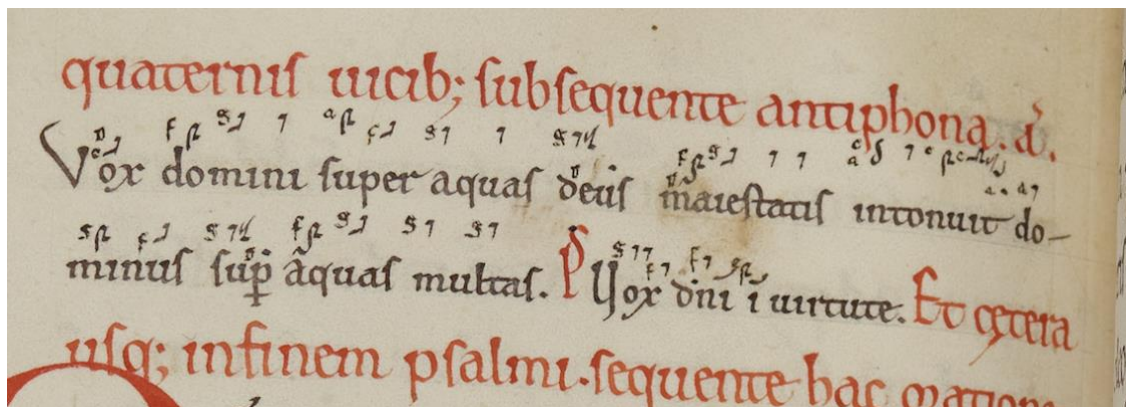 quaternis uicib; subsequente antiphona. ã.
Vox domini super aquas deus maiestatis intonuit do-
minus sup̱ aquas multas. P Vox dñi ĩ uirtute. Et cętera
usq; infinem psalmi. sequente hac oratione